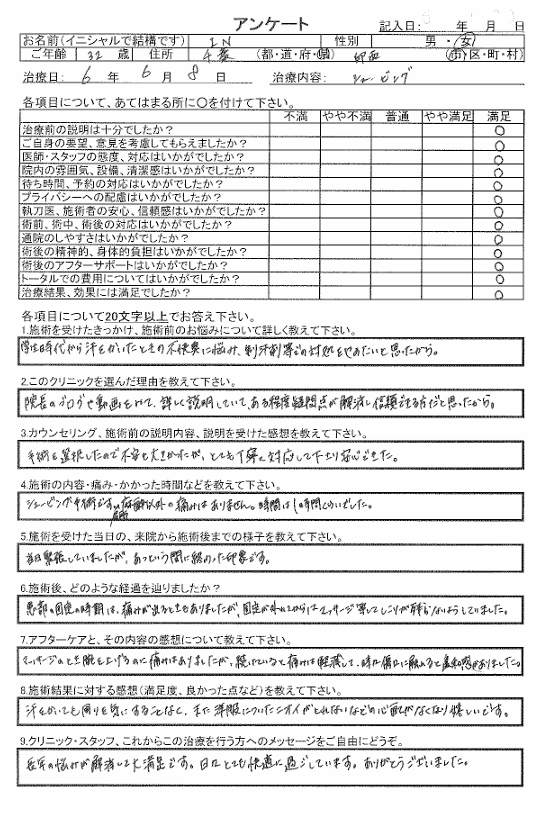 アンケート
記入日: 年 月 日
お名前(イニシャルで結構です) I N 性別 男・女
ご年齢 32 歳 住所 千葉 (都・道・府・県) 印西 (市・区・町・村)
治療日: 6 年 6 月 8 日 治療内容: シェービング
各項目について、あてはまる所に〇を付けて下さい。
不満 やや不満 普通 やや満足 満足
治療前の説明は十分でしたか? 〇
ご自身の要望、意見を考慮してもらえましたか? 〇
医師・スタッフの態度、対応はいかがでしたか? 〇
院内の雰囲気、設備、清潔感はいかがでしたか? 〇
待ち時間、予約の対応はいかがでしたか? 〇
プライバシーへの配慮はいかがでしたか? 〇
執刀医、施術者の安心、信頼感はいかがでしたか? 〇
術前、術中、術後の対応はいかがでしたか? 〇
通院のしやすさはいかがでしたか? 〇
術後の精神的、身体的負担はいかがでしたか? 〇
術後のアフターサポートはいかがでしたか? 〇
トータルでの費用についてはいかがでしたか? 〇
治療結果、効果には満足でしたか? 〇
各項目について20文字以上でお答え下さい。
1.施術を受けたきっかけ、施術前のお悩みについて詳しく教えて下さい。
学生時代から汗をかいたときの不快臭に悩み、制汗剤等での対処をやめたいと思ったから。
2.このクリニックを選んだ理由を教えて下さい。
院長のブログや動画をみて、詳しく説明していて、ある程度疑問点が解消し信頼できる方だと思ったから。
3.カウンセリング、施術前の説明内容、説明を受けた感想を教えて下さい。
手術を選択したので不安も大きかったが、とても丁寧に対応して下さり安心できた。
4.施術の内容・痛み・かかった時間などを教えて下さい。
シェービング手術です。麻酔以外の痛みはありません。時間は1時間くらいでした。
5.施術を受けた当日の、来院から施術後までの様子を教えて下さい。
当日緊張していましたが、あっという間に終わった印象です。
6.施術後、どのような経過を辿りましたか?
患部の固定の時期は、痛みが出るときもありましたが、固定が外れてからはマッサージ等してしこりが残らないようしていました。
7.アフターケアと、その内容の感想について教えて下さい。
マッサージのとき腕を上げるのに痛みはありましたが、続けていると痛みは軽減して、時に傷口に触れると違和感がありました。
8.施術結果に対する感想(満足度、良かった点など)を教えて下さい。
汗をかいても周りを気にすることなく、また洋服についたニオイがとれないなどの心配がなくなり嬉しいです。
9.クリニック・スタッフ、これからこの治療を行う方へのメッセージをご自由にどうぞ。
長年の悩みが解消して大満足です。日々とても快適に過ごしています。ありがとうございました。